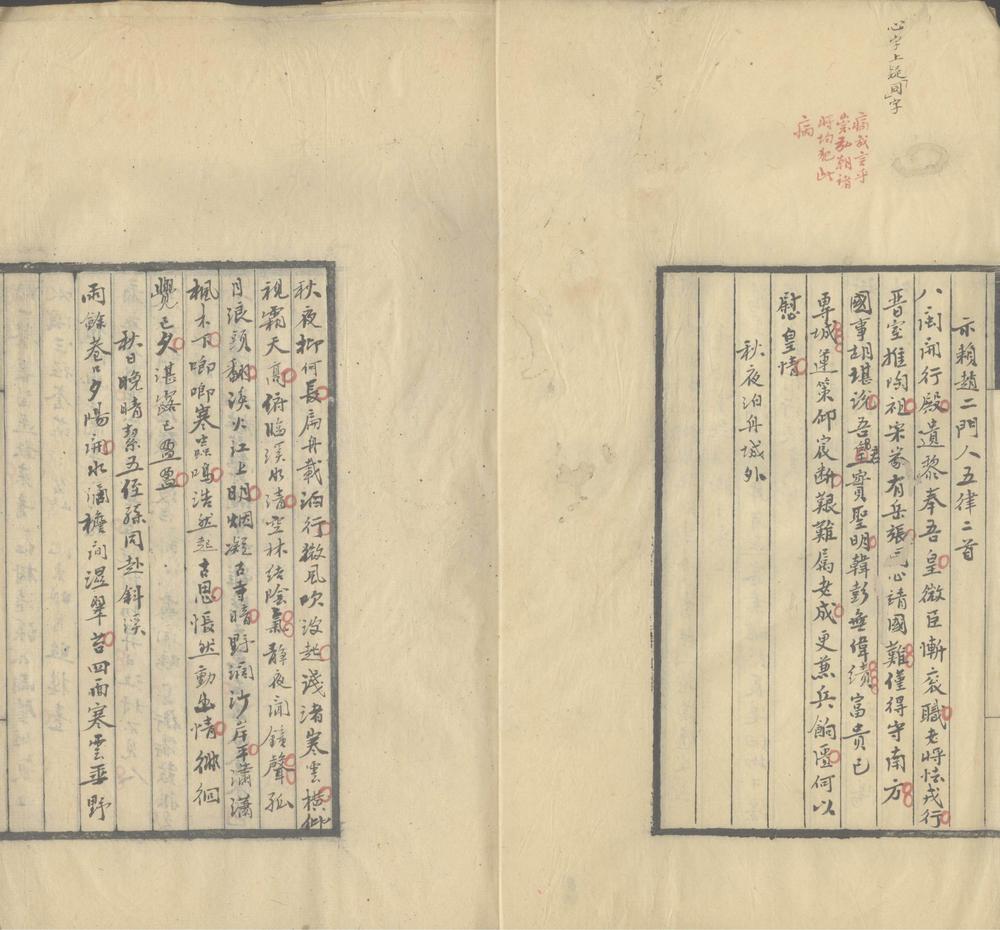 心字上疑同字
病哉言乎
崇弘朝諸
將均犯此
病
示賴趙二門人五律二首
八閩開行殿遺黎奉吾皇微臣慚衮職老將怯戎行
晉室推陶祖宋家有岳張 心靖國難僅得守南方
國事胡堪說吾皇實聖明韓彭無偉績富貴已
專城運策仰宸斷艱難屬老成更兼兵餉匱何以
慰皇情
秋夜泊舟城外
秋夜抑何長扁舟載泊行微風吹波起淺渚寒雲橫仰
視霜天高俯臨溪水清空林結陰氣靜夜聞鐘聲孤
月浪頭翻漁火江上明烟凝古寺暗野濶沙岸平瀟瀟
楓木下唧唧寒蟲鳴浩然起古思悵然動幽情徘徊
覺已夕湛露已盈盈
秋日晚晴絜五侄孫同赴斜溪
雨餘巷口夕陽開水滴檐前濕翠苔四面寒雲垂野